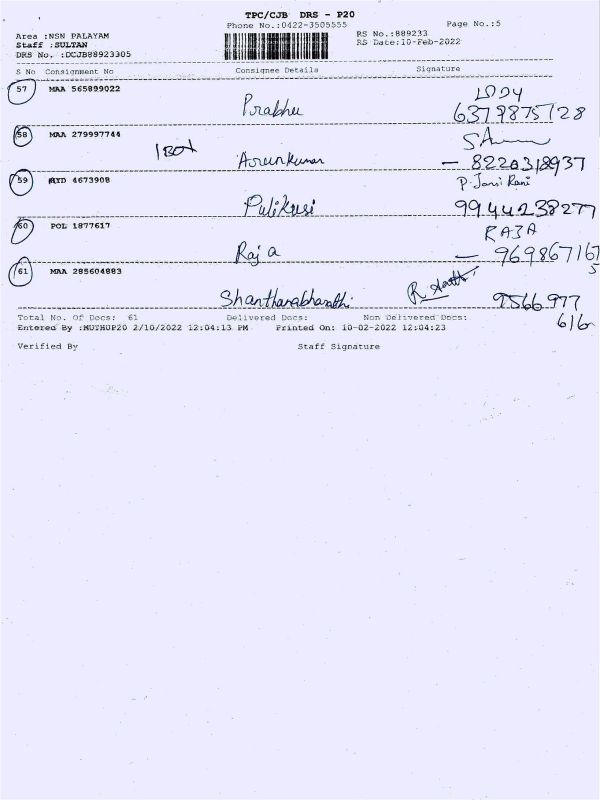 TPC/CJB DRS - P20
Phone No.:0422-3505555 Page No.:5
Area :NSN PALAYAM RS No.:889233
Staff :SULTAN RS Date:10-Feb-2022
DRS No. :DCJB88923305
S No Consignment No Consignee Details Signature
57 MAA 565899022
Prabhu 6379875728
58 MAA 279997744
1 BOX Arunkumar - 8220318937
59 AYD 4673908 P. Jansi Rani
Pulikusi 9944238277
60 POL 1877617 RAJA
Raja - 9698671675
61 MAA 285604883
Shantharabharathi 9566977
616
Total No. Of Docs: 61 Delivered Docs: Non Delivered Docs:
Entered By :MUTHUP20 2/10/2022 12:04:13 PM Printed On: 10-02-2022 12:04:23
Verified By Staff Signature